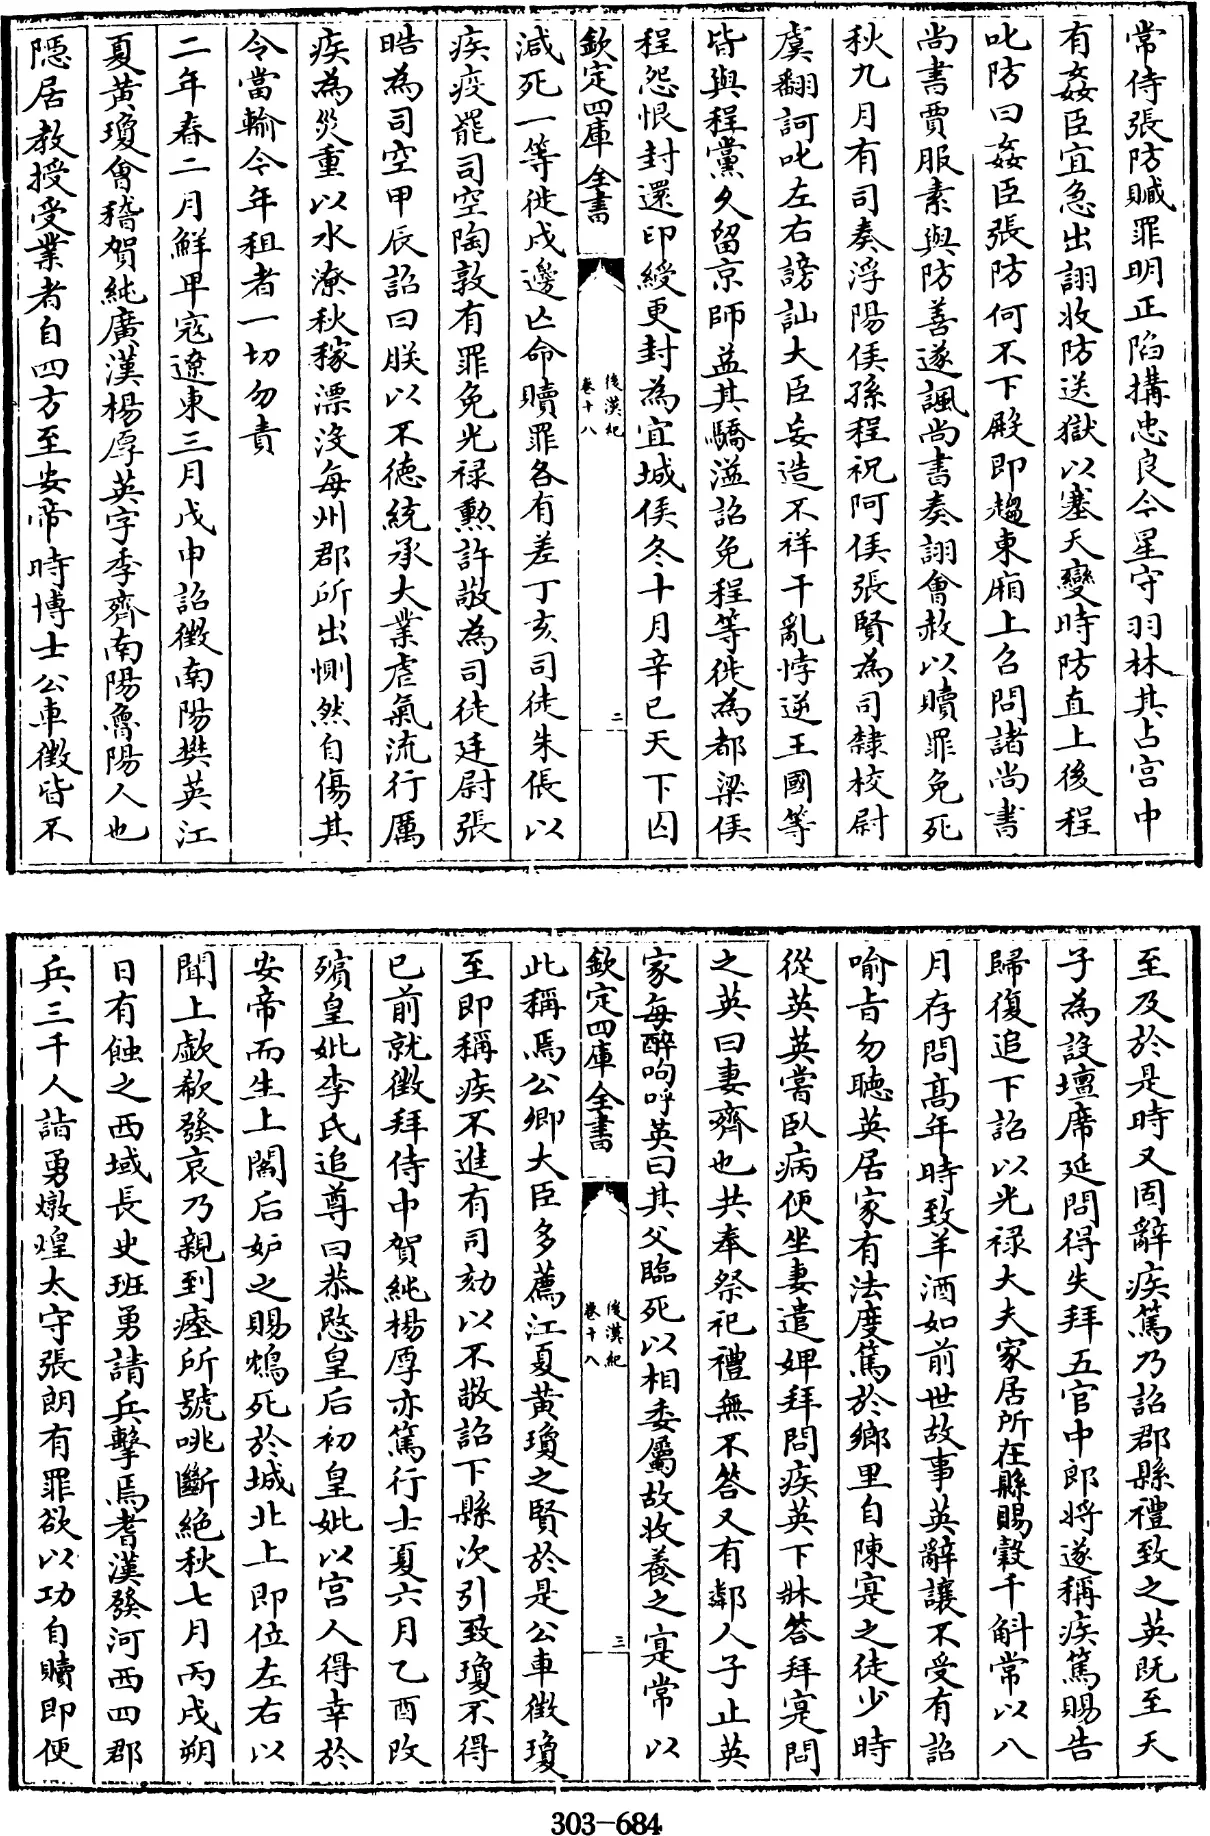 常侍張防贓罪明正陷搆忠良今星守羽林其占宫中
有姦臣宜急出詡收防送獄以塞天變時防直上後程
叱防曰姦臣張防何不下殿即趨東廂上召問諸尚書
尚書賈服素與防善遂諷尚書奏詡會赦以贖罪免死
秋九月有司奏浮陽侯孫程祝阿侯張賢為司隸校尉
虞翻訶叱左右謗訕大臣妄造不祥干亂悖逆王國等
皆與程黨久留京師益其驕溢詔免程等徙為都梁侯
程怨恨封還印綬更封為宜城侯冬十月辛巳天下囚
欽定四庫全書
後漢紀
卷十八
二
減死一等徙戍邊亡命贖罪各有差丁亥司徒朱倀以
疾疫罷司空陶敦有罪免光禄勲許敬為司徒廷尉張
晧為司空甲辰詔曰朕以不徳統承大業虐氣流行厲
疾為災重以水潦秋稼漂沒每州郡所出惻然自傷其
令當輸今年租者一切勿責
二年春二月鮮卑寇遼東三月戊申詔徴南陽樊英江
夏黄瓊會稽賀純廣漢楊厚英字季齊南陽魯陽人也
隠居教授受業者自四方至安帝時博士公車徴皆不
至及於是時又固辭疾篤乃詔郡縣禮致之英既至天
子為設壇席延問得失拜五官中郎將遂稱疾篤賜告
歸復追下詔以光禄大夫家居所在縣賜穀千斛常以八
月存問高年時致羊酒如前世故事英辭讓不受有詔
喻㫖勿聴英居家有法度篤於鄉里自陳寔之徒少時
從英英嘗臥病便坐妻遣婢拜問疾英下牀答拜寔問
之英曰妻齊也共奉祭祀禮無不答又有鄰人子止英
家每醉呴呼英曰其父臨死以相委屬故收養之寔常以
欽定四庫全書
後漢紀
卷十八
三
此稱焉公卿大臣多薦江夏黄瓊之賢於是公車徴瓊
至即稱疾不進有司劾以不敬詔下縣次引致瓊不得
已前就徴拜侍中賀純楊厚亦篤行士夏六月乙酉改
殯皇妣李氏追尊曰恭愍皇后初皇妣以宫人得幸於
安帝而生上閻后妒之賜鴆死於城北上即位左右以
聞上歔欷發哀乃親到瘞所號咷斷絶秋七月丙戌朔
日有蝕之西域長史班勇請兵擊焉耆漢發河西四郡
兵三千人詣勇燉煌太守張朗有罪欲以功自贖即便
303-684